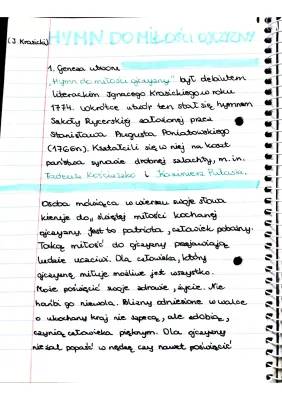 (I Krasicki) HYMN DO MIŁOŚCI OJCZYZNY
1. Geneza utworu
„Hymn do miłości ojczyzny" był debiutem
literackim Ignacego Krasickiego w roku
1774. Wkrótce utwór ten stał się hymnem
Szkoły Rycerskiej założonej przez
Stanisława Augusta Poniatowskiego
(1766r.). Kształcili się w niej na koszt
państwa synowie drobnej szlachty, m.in.
Tadeusz Kościuszko i Kazimierz Pułaski.
Osoba mówiąca w wierszu swoje słowa
kieruje do „świętej miłości kochanej
ojczyzny. Jest to patriota, człowiek pobożny.
Taką miłość do ojczyzny przejawiają
ludzie uczciwi. Dla człowieka, który
ojczyznę miłuje możliwe jest wszystko.
Może poświęcić swoje zdrowie, życie. Nie
hańbi go niewola. Blizny odniesione w walce
o ukochany kraj nie szpecą, ale zdobią,
czynią człowieka pięknym. Dla ojczyzny
nie żal popaść w nędzę czy nawet poświęcić